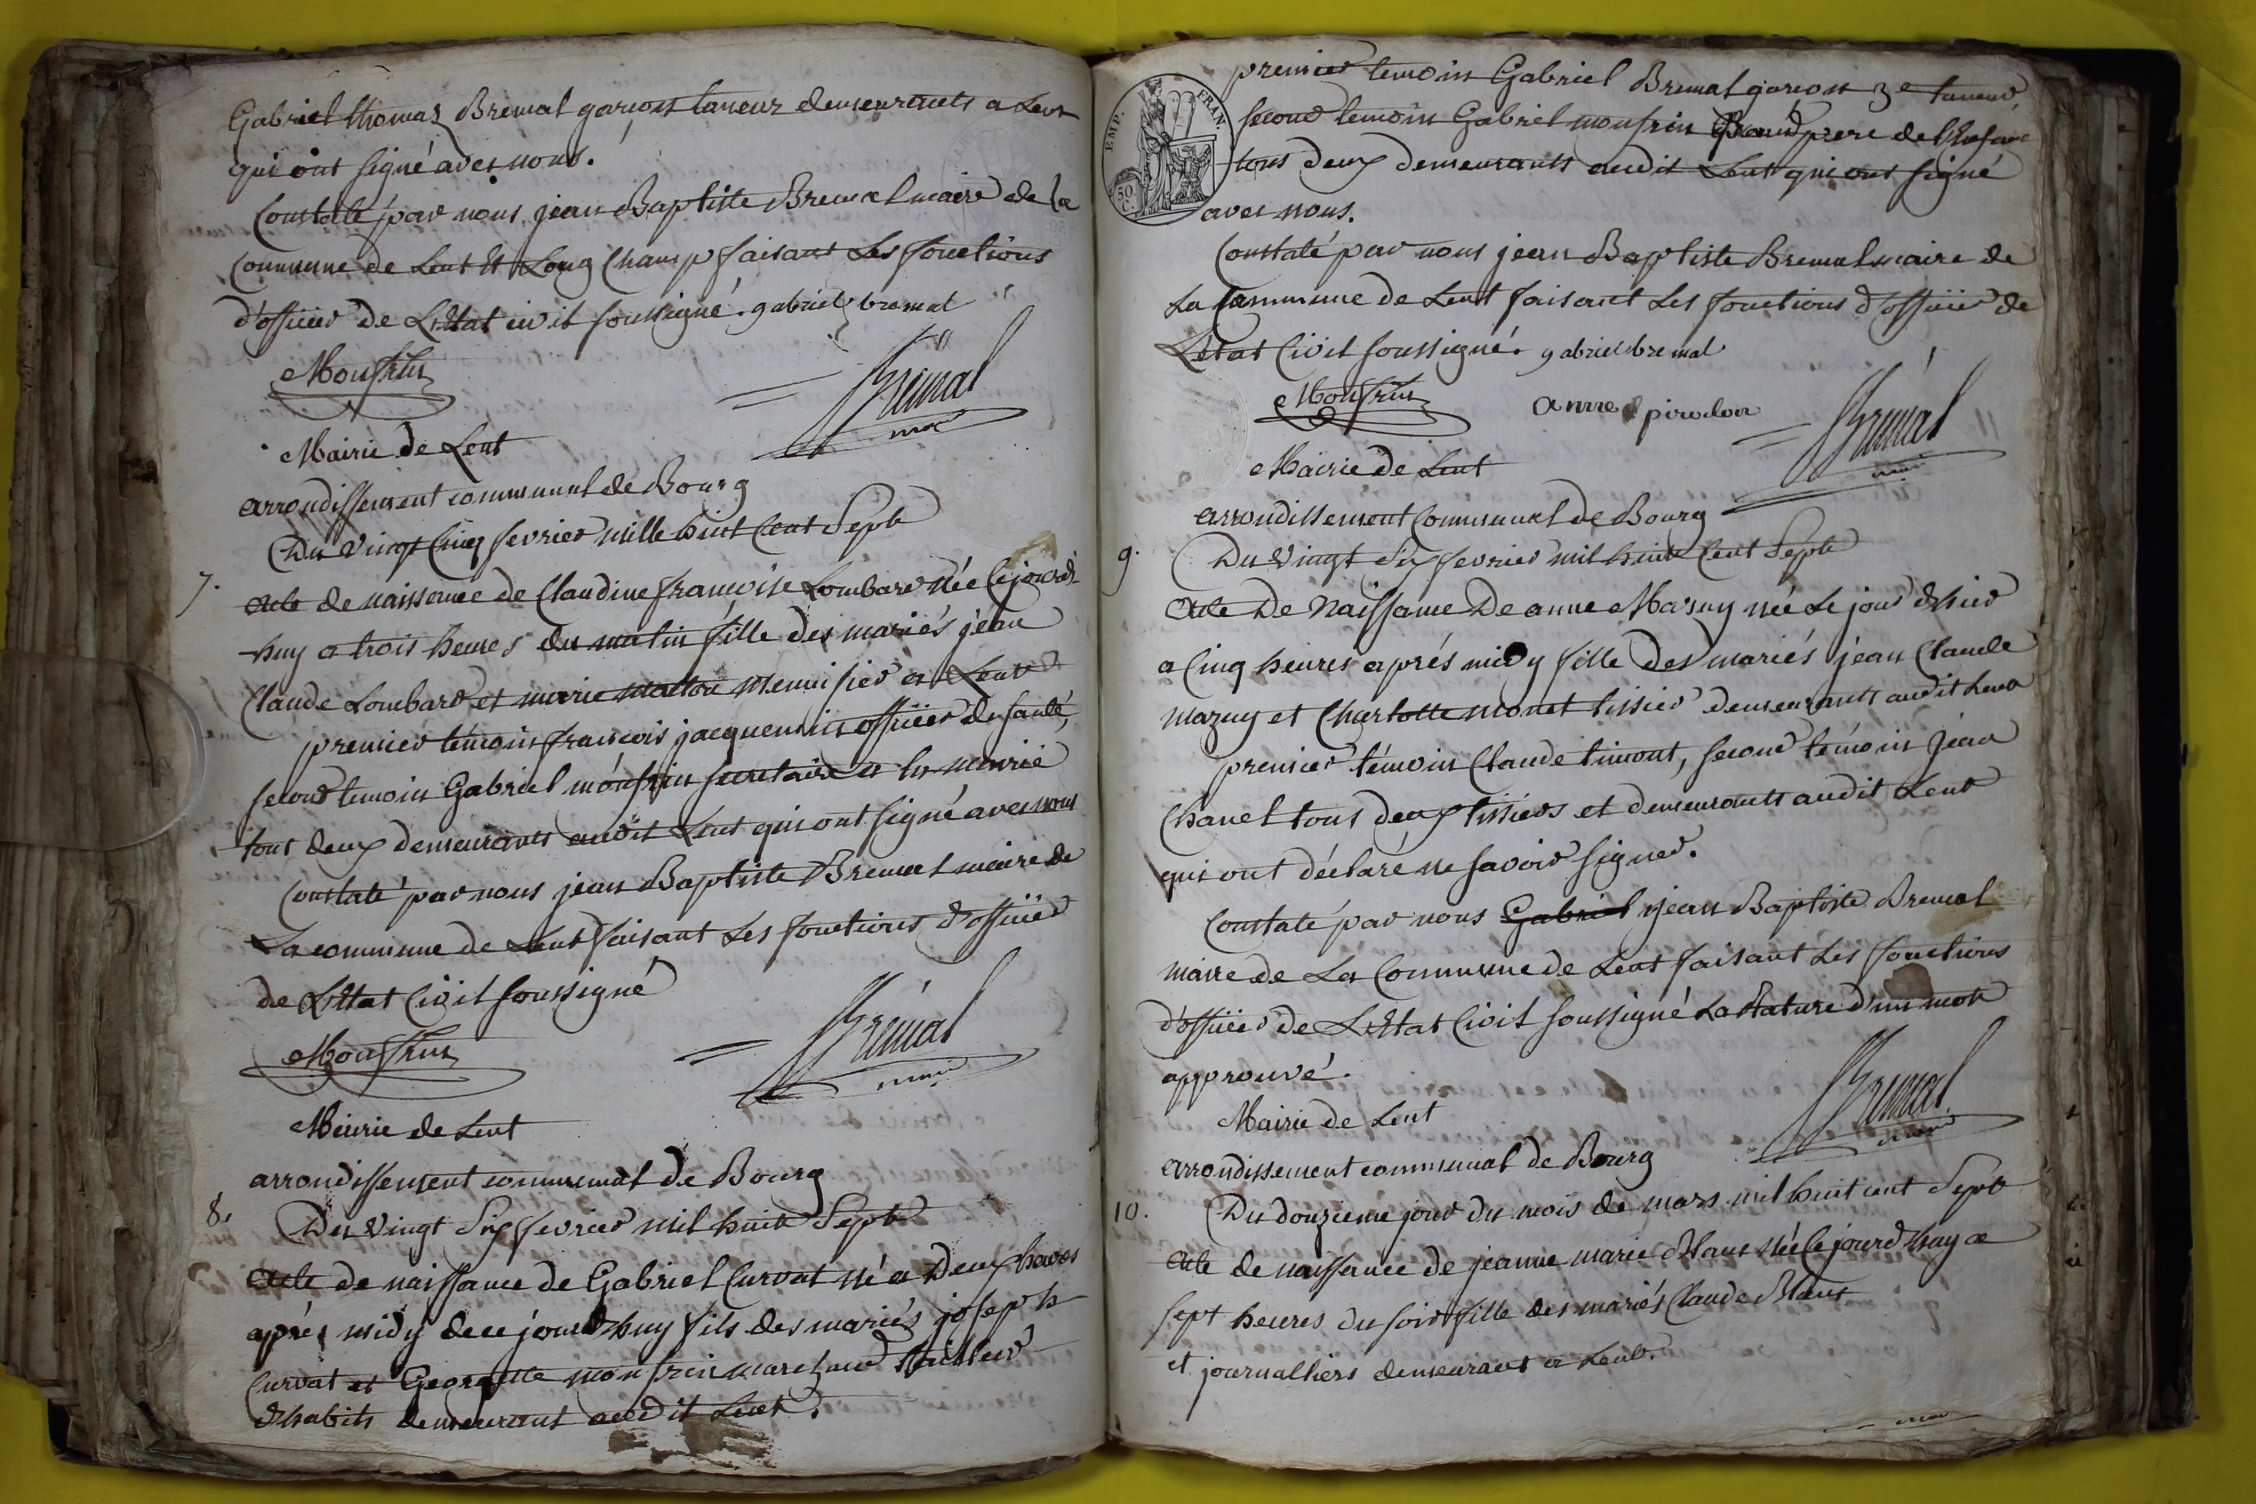 Gabriel thomas Bremal garçon taneur demeurants a Lent
qui ont signé avec nous.
Constaté par nous jean Baptiste Bremal maire de la
Commune de Lent Et Long Champ faisant Les fonctions
d'officier de L'Etat civil soussigné. gabriel bremal
Monfrin
Bremal
maire
Mairie de Lent
arrondissement communal de Bourg
Du vingt Cinq fevrier mille huit Cent Sept
7.
Acte de naissance de Claudine françoise Lombard née Cejourd'
huy a trois heures du matin fille des mariés jean
Claude Lombard et marie menuisier a Lent
premier temoin francois jacquemin officier de santé,
second temoin Gabriel monfrin secretaire a la mairie
tout deux demeurants audit Lent qui ont signé avec nous
Constaté par nous jean Baptiste Bremal maire de
La commune de Lent faisant Les fonctions d'officier
de L'Etat Civil soussigné
Monfrin
Bremal
maire
Mairie de Lent
arrondissement communal de Bourg
8.
Du vingt Six fevrier mil huit Sept
Acte de naissance de Gabriel Curvat né a Deux heures
aprés midy de ce jourdhuy fils des mariés joseph
Curvat et Georgette monfrin marchand tailleur
d'habits demeurant audit Lent.
EMP. FRAN.
50 C.
premier temoin Gabriel Bremal garçon taneur
second temoin Gabriel monfrin Grand pere de l'Enfant
tous deux demeurants audit Lent qui ont signé
avec nous.
Constaté par nous jean Baptiste Bremal maire de
La Commune de Lent faisant Les fonctions d'officier de
L'etat Civil soussigné. gabriel bremal
Monfrin
anne pirodon
Bremal
maire
Mairie de Lent
arrondissement Communal de Bourg
9.
Du vingt Six fevrier mil huit Cent Sept
Acte De Naissance De anne Mazuy née Le jour d'hier
a Cinq heures aprés midy fille des mariés jean Claude
mazuy et Charlotte monet tissier demeurants audit Lent
premier témoin Claude timont, second témoin jean
Chanel tous deux tissiers et demeurants audit Lent
qui ont déclaré ne savoir signer.
Constaté par nous Gabriel jean Baptiste Bremal
maire de La Commune de Lent faisant Les fonctions
d'officier de L'Etat Civil soussigné La Rature d'un mot
approuvé.
Bremal
maire
Mairie de Lent
arrondissement communal de Bourg
10.
Du douzieme jour du mois de mars mil huit cent Sept
Acte de naissance de jeanne marie Blanc née Cejourd'huy a
sept heures du soir fille des mariés Claude Blanc
et journalliers demeurant a Lent.
maire